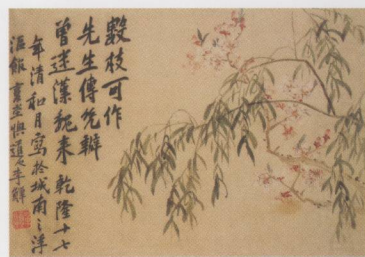 數枝可作
先生傳
曾迷漢魏來 乾隆十七
年清和月寫於城南之浮
漚館 懊道人李鱓